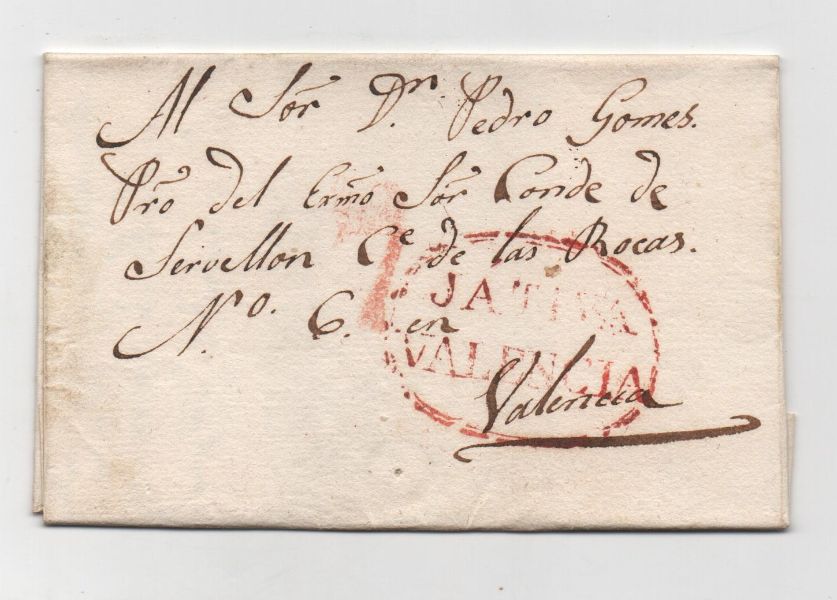 Al Sõr Dn. Pedro Gomes.
Prõ del Exmõ Sõr Conde de
Servellon Ce de las Rocas.
No. 6. en
Valencia
JATIVA
VALENCIA